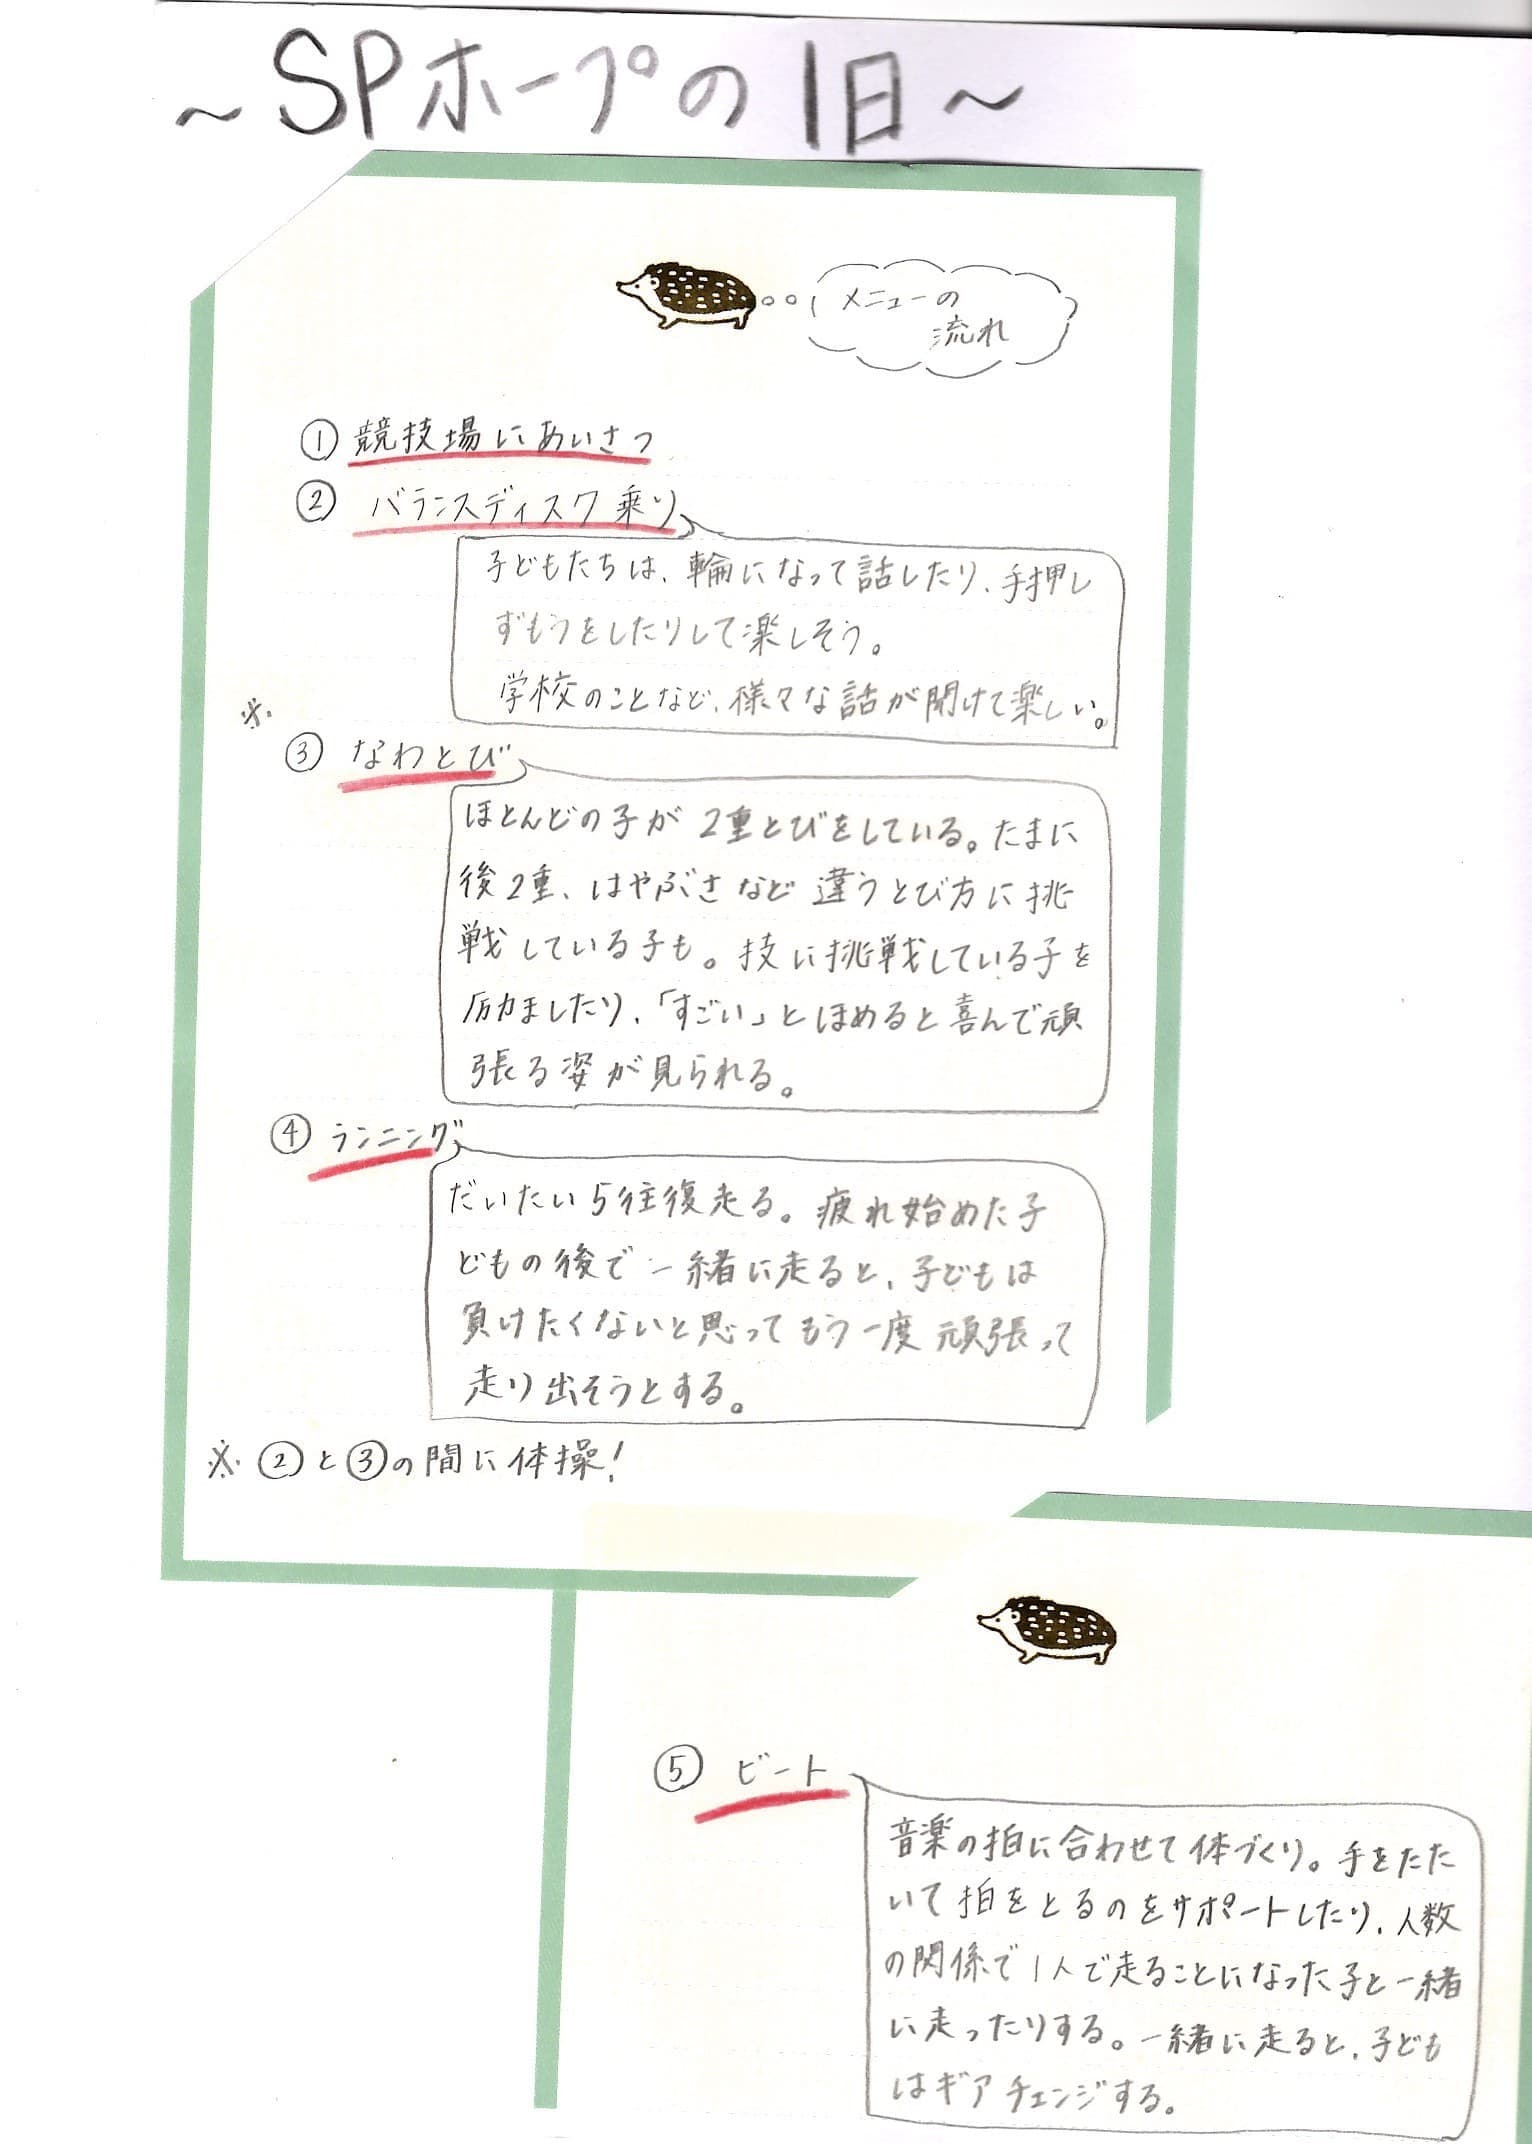 ～SPホープの1日～
メニューの
流れ
① 競技場にあいさつ
② バランスディスク乗り
子どもたちは、輪になって話したり、手押し
ずもうをしたりして楽しそう。
学校のことなど、様々な話が聞けて楽しい。
※
③ なわとび
ほとんどの子が2重とびをしている。たまに
後2重、はやぶさなど違うとび方に挑
戦している子も。技に挑戦している子を
励ましたり、「すごい」とほめると喜んで頑
張る姿が見られる。
④ ランニング
だいたい5往復走る。疲れ始めた子
どもの後で一緒に走ると、子どもは
負けたくないと思ってもう一度頑張って
走り出そうとする。
※②と③の間に体操！
⑤ ビート
音楽の拍に合わせて体づくり。手をたた
いて拍をとるのをサポートしたり、人数
の関係で1人で走ることになった子と一緒
に走ったりする。一緒に走ると、子ども
はギアチェンジする。